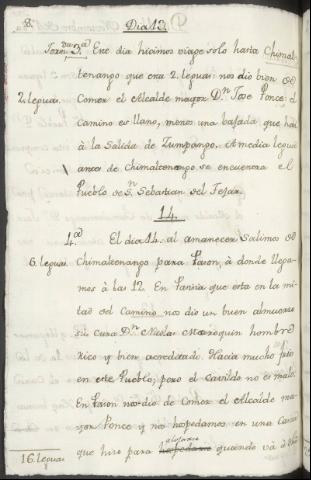 8.
Dia 13.
Jorn.da 3.a Ese dia hicimos viage solo hasta Chimal-
tenango que era 2. leguas: nos dio bien de
2. leguas. Comer el Alcalde mayor Dn. Jose Ponce: el
camino es llano, menos una bajada que hai
à la Salida de Zumpango. A media legua
antes de Chimaltenango se encuentra el
Pueblo de Sn. Sebastian del Tejar.
14.
4.a El dia 14. al amanecer Salimos de
6. leguas. Chimaltenango para Pason, à donde llega-
mos à las 12. En Patisia que esta en la mi-
tad del Camino nos dio un buen almuerzo
su Cura Dn. Nicolas Marroquin hombre
rico y bien acreditado. Hacia mucho frio
en este Pueblo; pero el Cavildo no es malo.
En Pason nos dio de Comer el Alcalde ma-
yor Ponce y nos hospedamos en una Casa
alojarse
16. leguas. que hizo para hospedarse quando và à